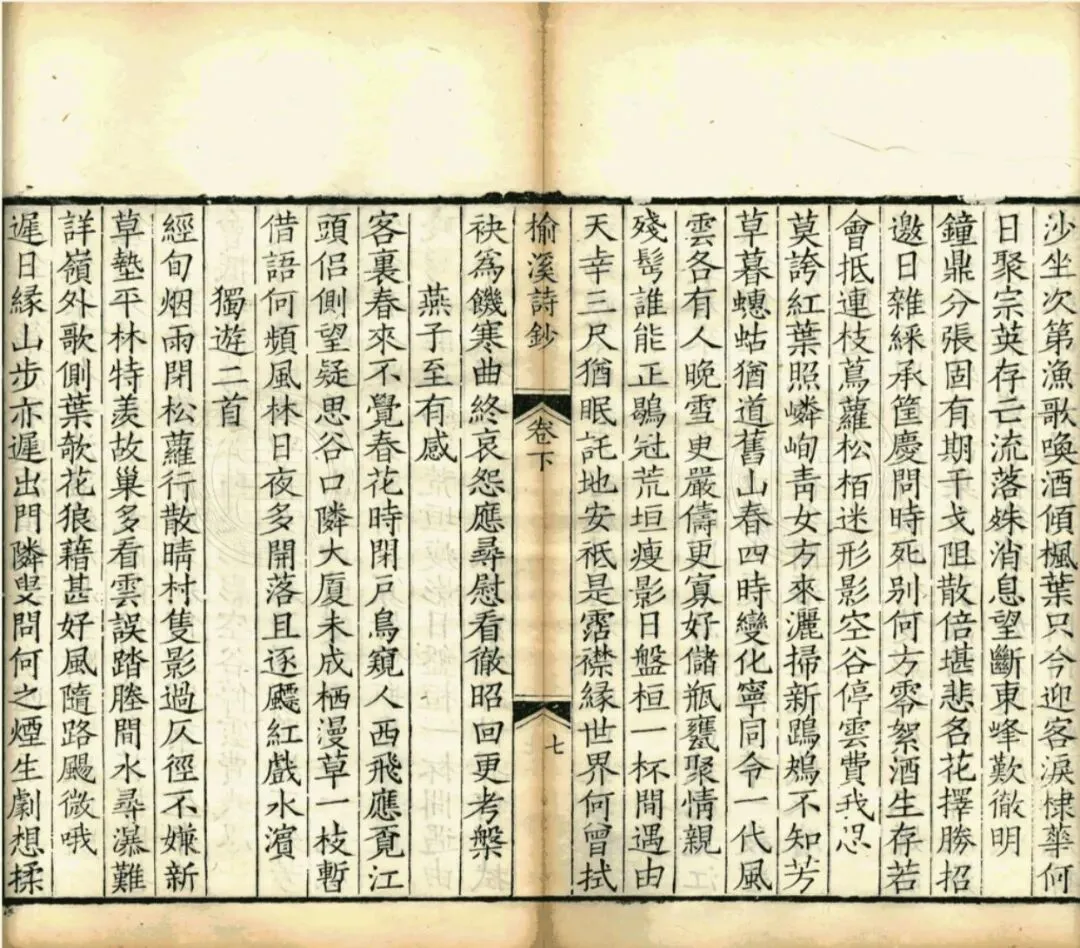 沙坐次第漁歌喚酒傾楓葉只今迎客淚棣華何
日聚宗英存亡流落姝消息望斷東峰歎徹明
鐘鼎分張固有期干戈阻散倍堪悲名花擇勝招
邀日雜綵承筐慶問時死別何方零絮酒生存若
會抵連枝蔦蘿松栢迷形影空谷停雲費我思
莫誇紅葉照嶙峋青女方來灑掃新鵾鴂不知芳
草暮蟪蛄猶道舊山春四時變化寧同令一代風
雲各有人晚雪更嚴儔更寡好儲瓶甕聚情親
殘髩誰能正鶡冠荒垣瘦影日盤桓一杯間遇由
天幸三尺猶眠託地安袛是霑襟緣世界何曾拭
榆溪詩鈔
卷下
七
袂爲饑寒曲終哀怨應尋慰看徹昭回更考槃
燕子至有感
客裏春來不覺春花時閉戸鳥窺人西飛應覓江
頭侣側望疑思谷口隣大厦未成栖漫草一枝暫
借語何頻風林日夜多開落且逐飃紅戲水濱
獨遊二首
經旬烟雨閉松蘿行散晴村隻影過仄徑不嫌新
草墊平林特羨故巢多看雲誤踏塍間水尋瀑難
詳嶺外歌側葉欹花狼籍甚好風隨路颺微哦
遲日緣山步亦遲出門隣叟問何之煙生劇想揉